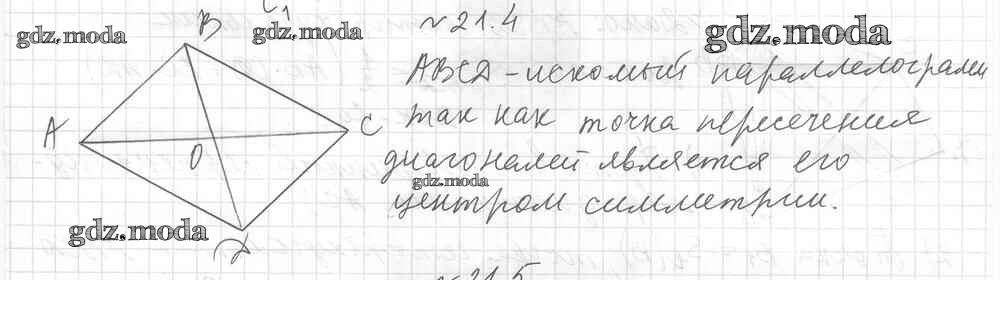 №21.4
gdz.moda
gdz.moda
gdz.moda
B
A
C
O
D
ABCD - искомый параллелограмм
так как точка пересечения
диагоналей является его
gdz.moda
центром симметрии.
gdz.moda
№21.5